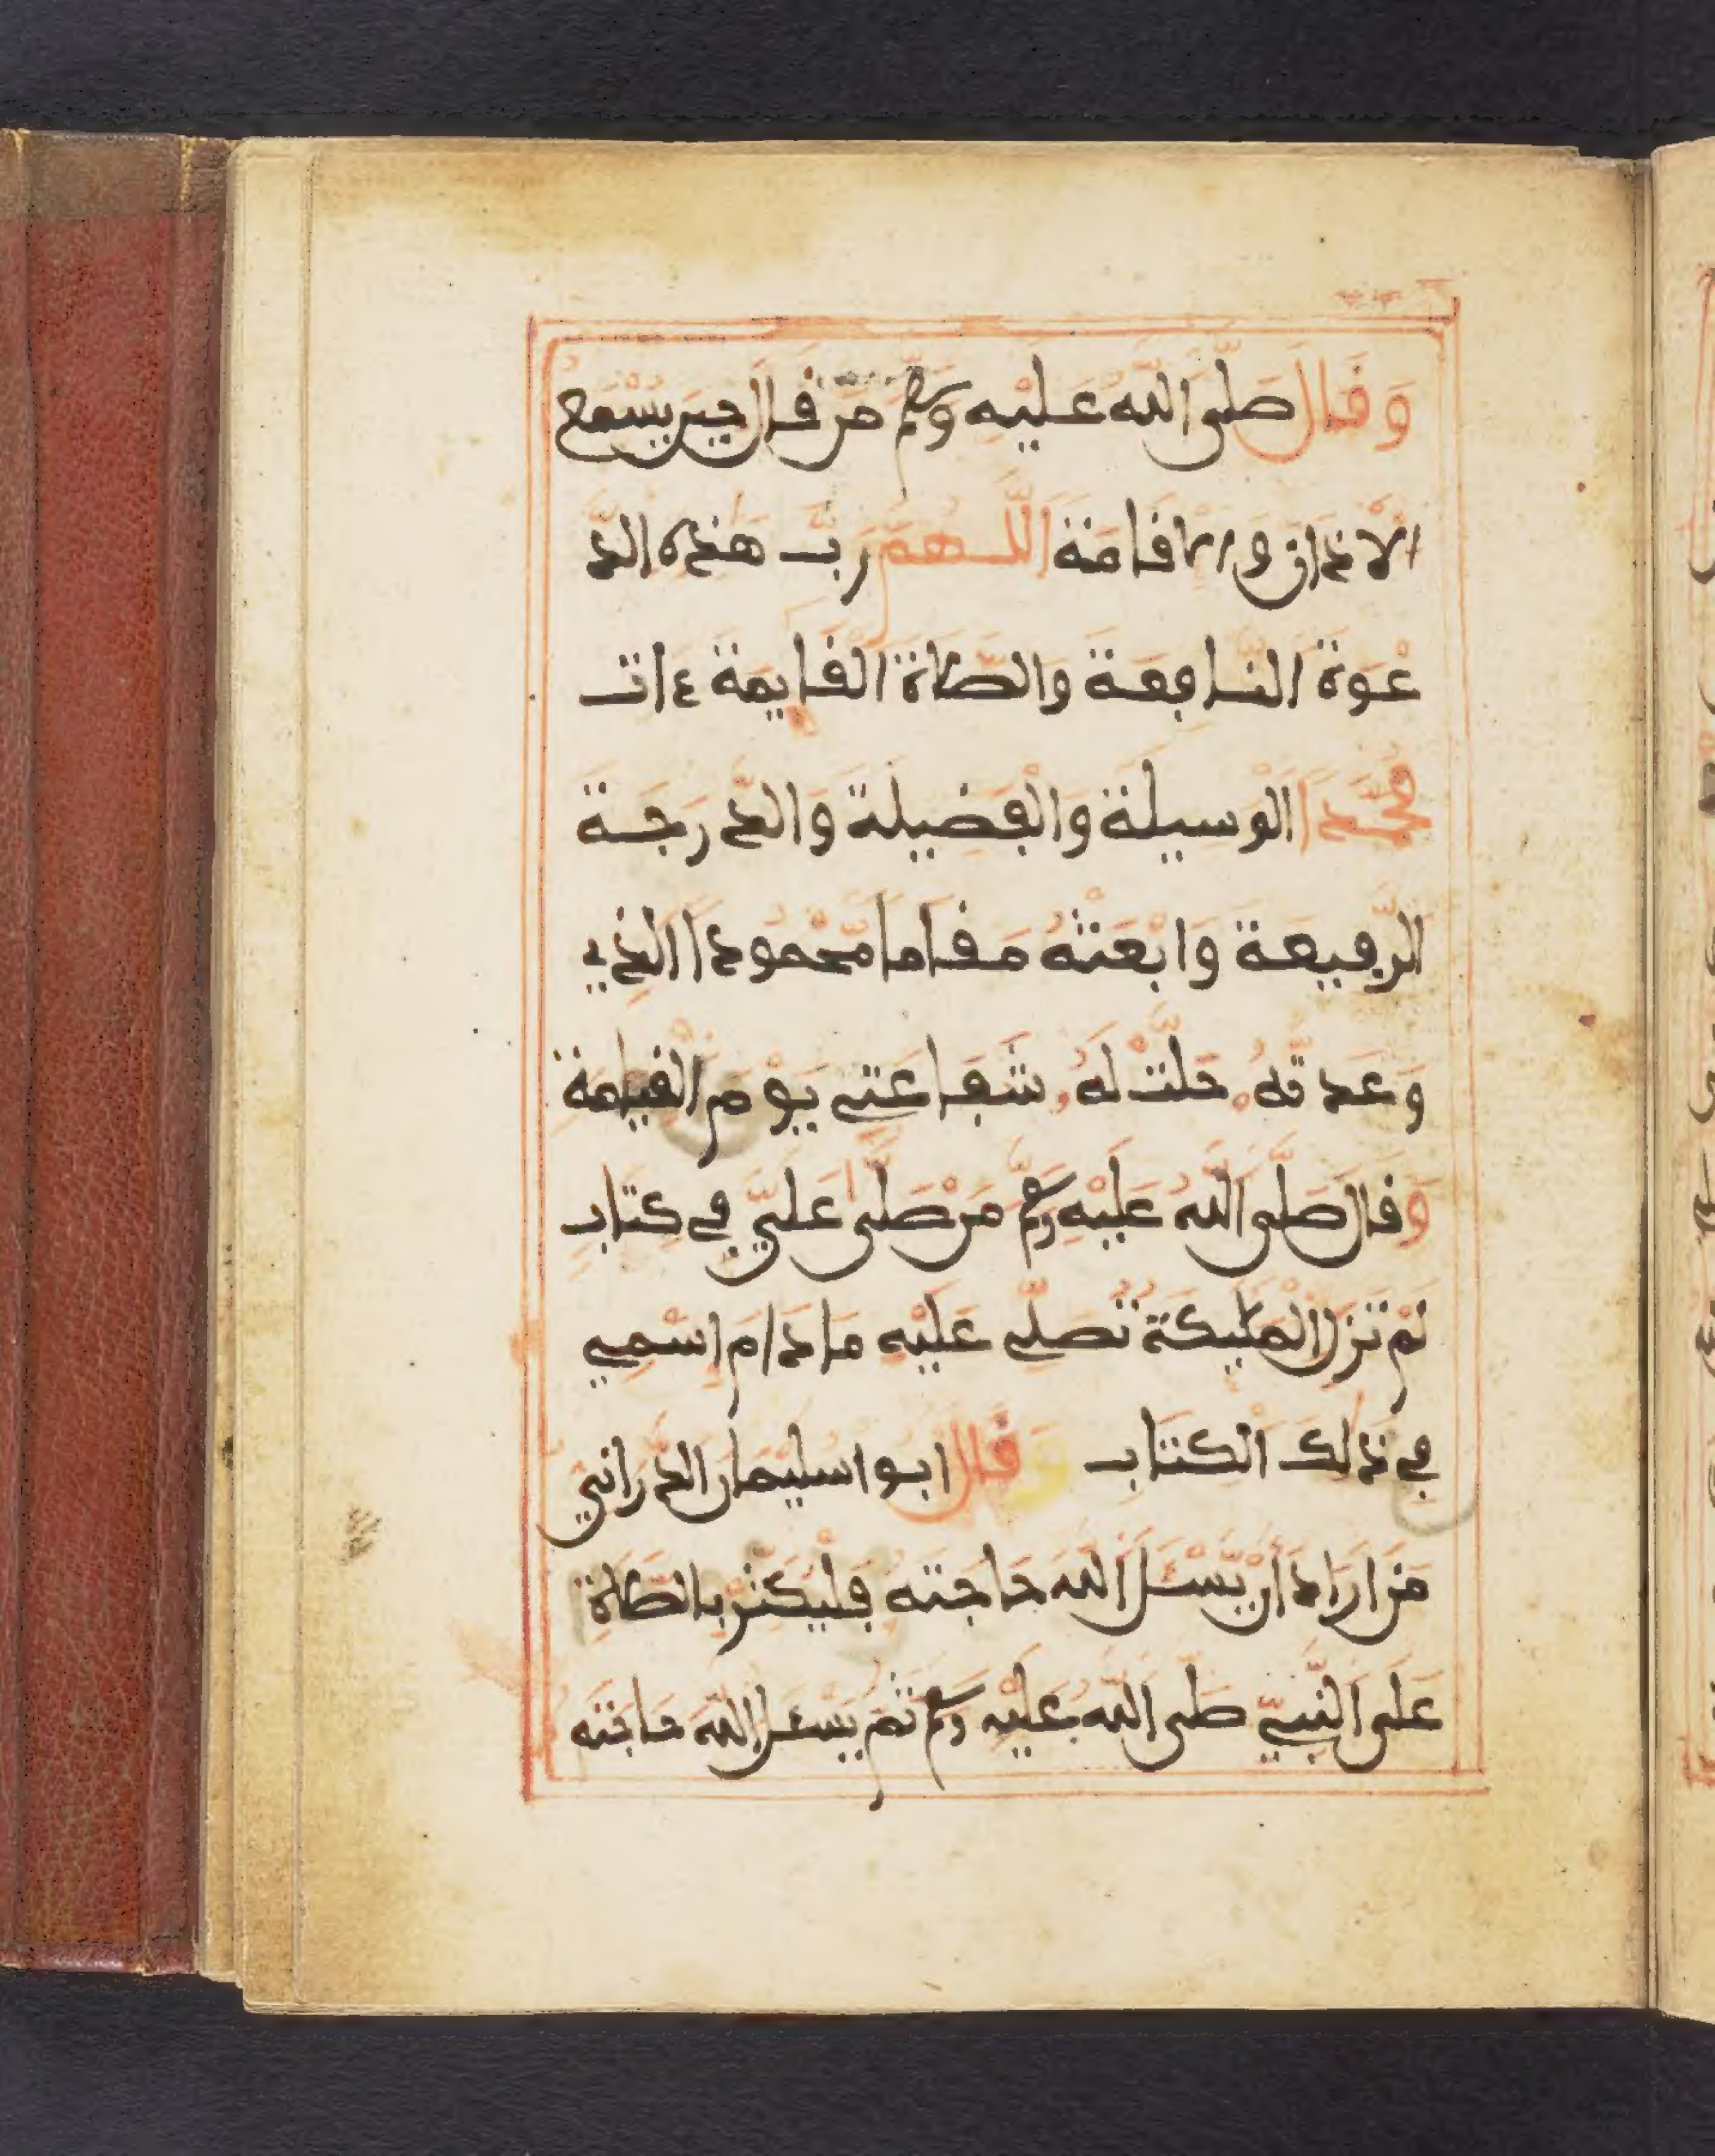 وَقَالَ صَلَّى اللهُ عَلَيْهِ وَسَلَّمَ مَن قَالَ حِينَ يَسْمَعُ
الْأَذَانَ وَالْإِقَامَةَ اللَّهُمَّ رَبَّ هَذِهِ الدَّ
عْوَةِ النَّافِعَةِ وَالصَّلَاةِ الْقَايِمَةِ ءَاتِ
مُحَمَّدًا الْوَسِيلَةَ وَالْفَضِيلَةَ وَالدَّرَجَةَ
الرَّفِيعَةَ وَابْعَثْهُ مَقَامًا مَّحْمُودًا الَّذِي
وَعَدتَّهُ حَلَّتْ لَهُ شَفَاعَتِي يَوْمَ الْقِيَامَةِ
وَقَالَ صَلَّى اللهُ عَلَيْهِ وَسَلَّمَ مَنْ صَلَّى عَلَيَّ فِي كِتَابٍ
لَمْ تَزَلِ الْمَلَيِكَةُ تُصَلِّي عَلَيْهِ مَا دَامَ اسْمِي
فِي ذَلِكَ الْكِتَابِ وَقَالَ ابوا سليمان الدَّرَانِيّ
مَنْ ارَادَ أَنْ يَّسْئَلَ اللهَ حَاجَتَهُ فَلْيُكْثِرْ بِالصَّلَاةِ
عَلَى النَّبِيِّ صَلَّى اللهُ عَلَيْهِ وَسَلَّمَ ثُمَّ يَسْئَلُ اللهَ حَاجَتَهُ